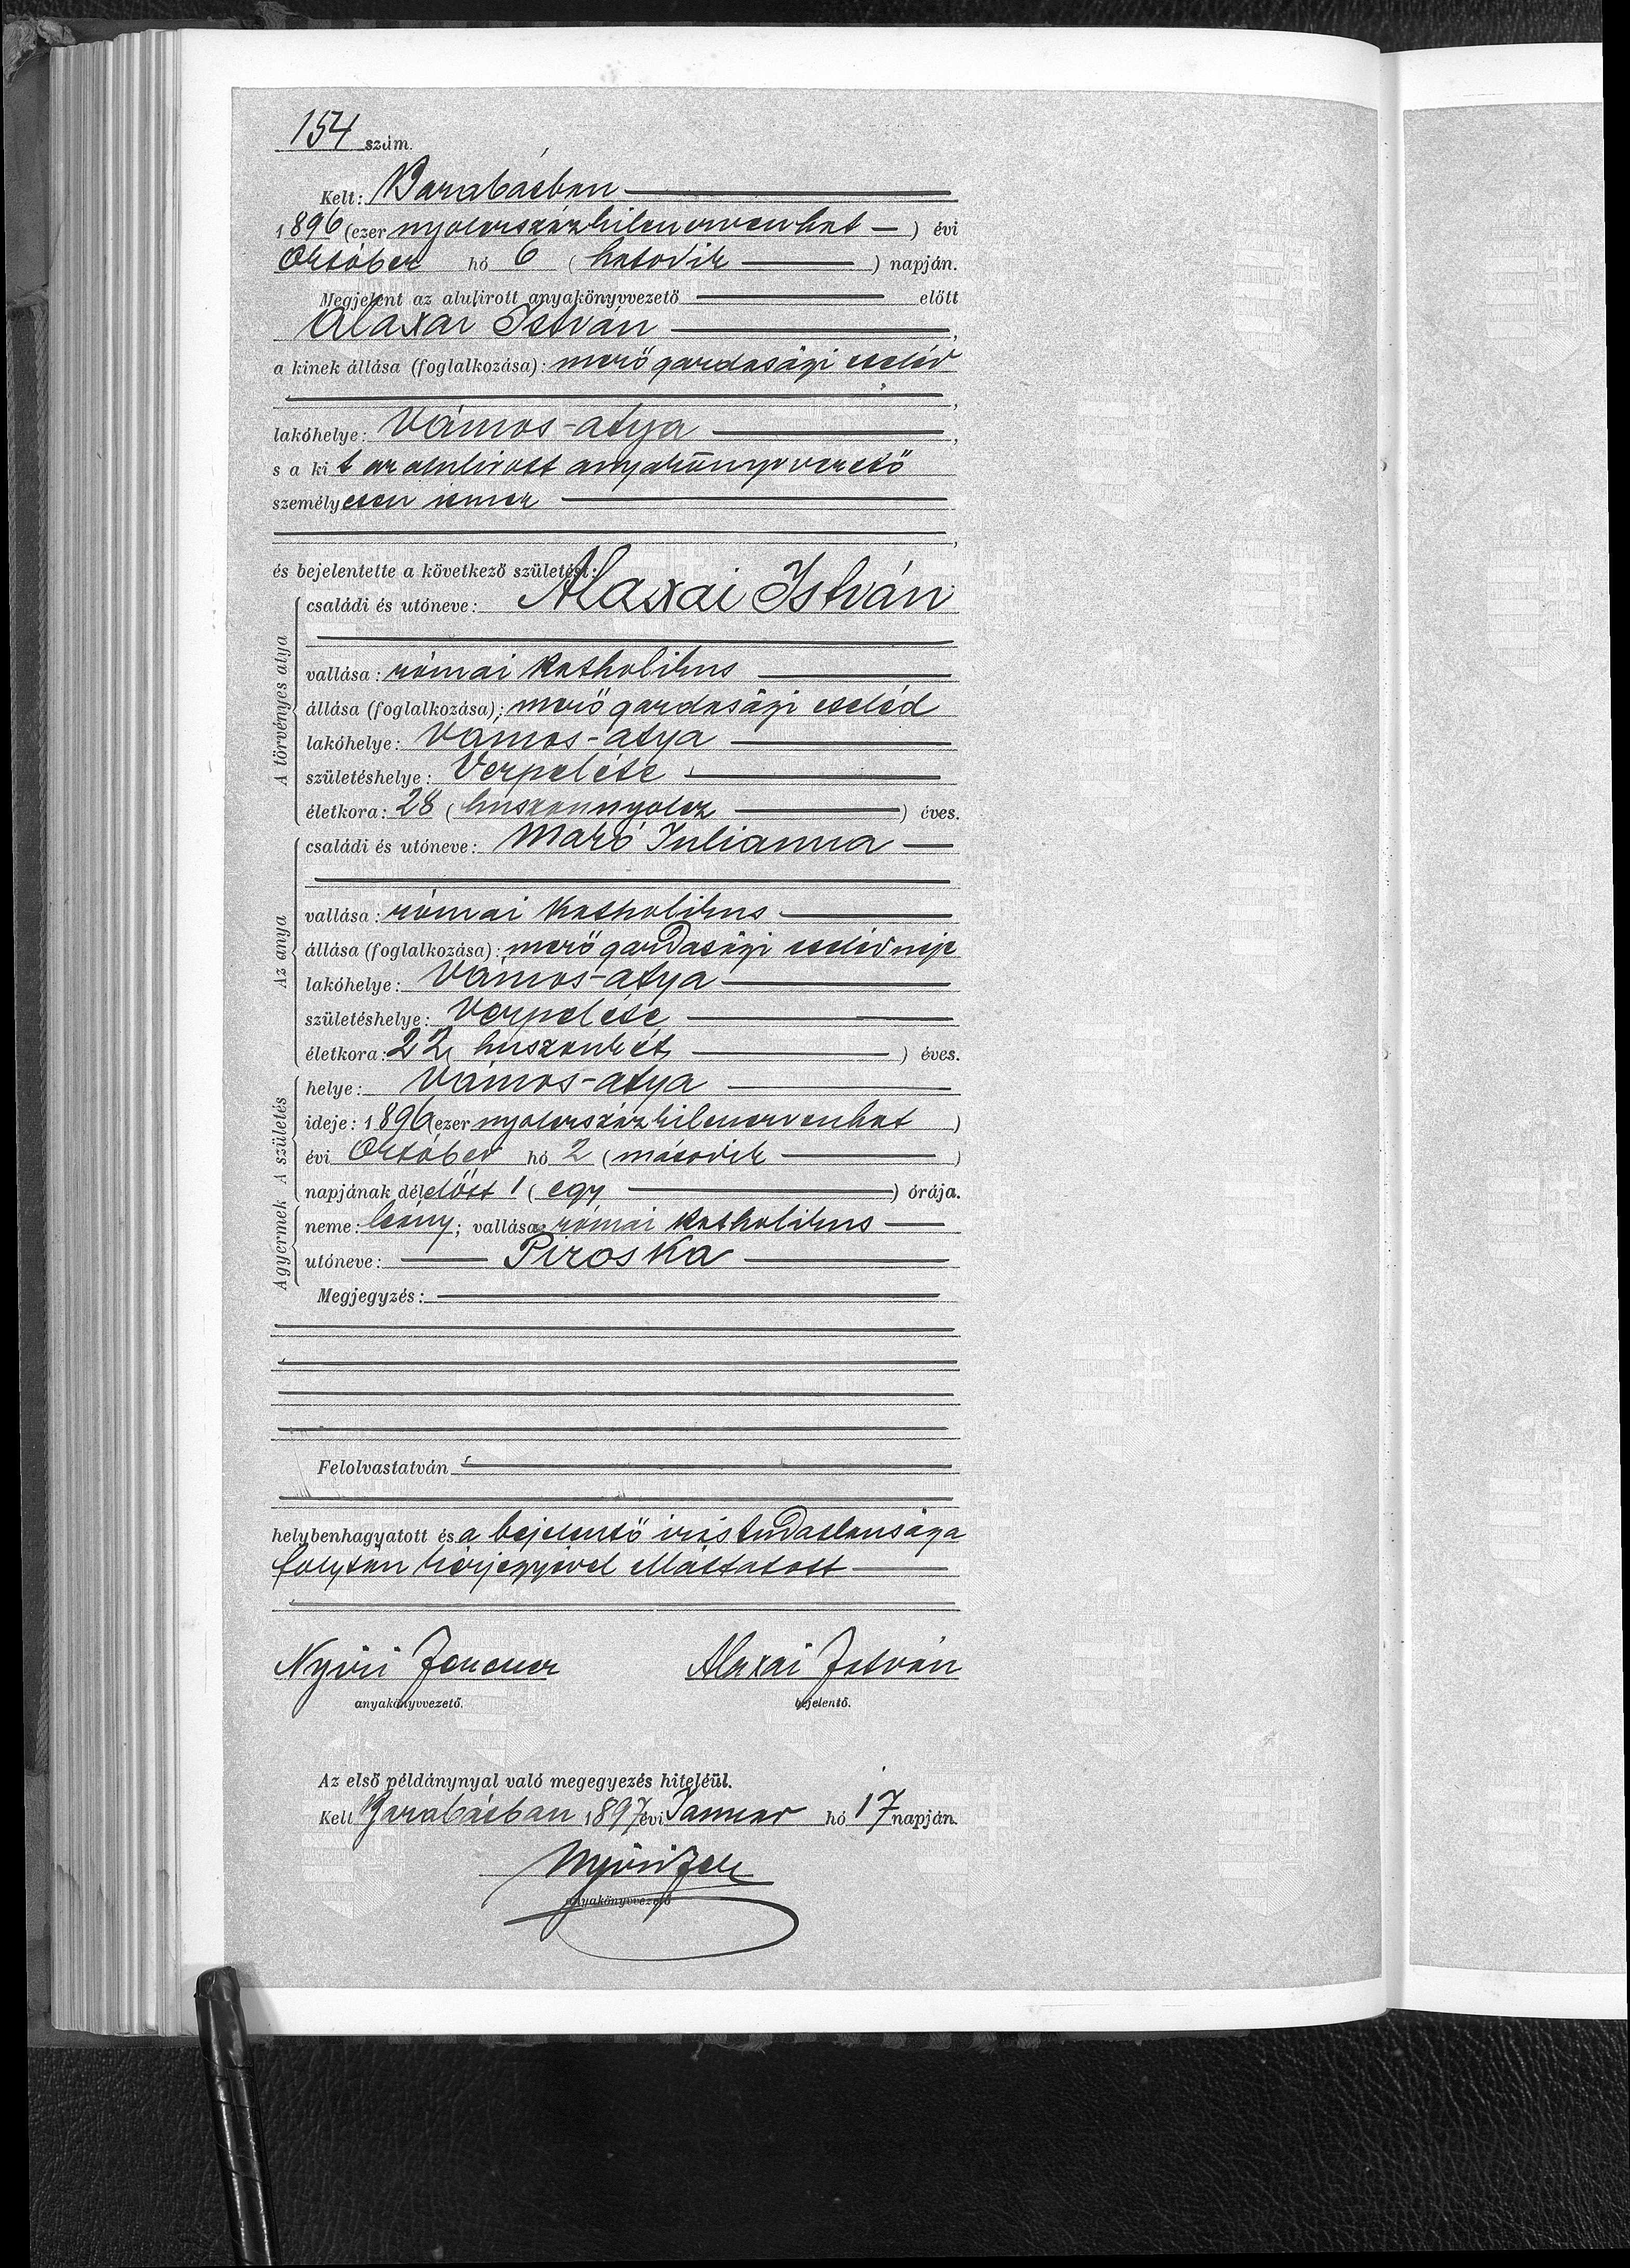 154 szám.
Kelt: Barabásban
1896 (ezer nyolcszázkilencvenhat) évi
Október hó 6 (hatodik) napján.
Megjelent az alulirott anyakönyvvezető előtt
Alaxai István,
a kinek állása (foglalkozása): mezőgazdasági cseléd
,
lakóhelye: Vámos-atya,
s a kit az alulirott anyakönyvvezető
személyesen ismer
,
és bejelentette a következő születést:
A törvényes atya
családi és utóneve: Alaxai István
vallása: római katholikus
állása (foglalkozása): mezőgazdasági cseléd
lakóhelye: Vámos-atya
születéshelye: Verpeléte
életkora: 28 (huszonnyolcz) éves.
Az anya
családi és utóneve: Makó Julianna
vallása: római katholikus
állása (foglalkozása): mezőgazdasági cselédneje
lakóhelye: Vámos-atya
születéshelye: Verpeléte
életkora: 22 huszonkét) éves.
A születés
helye: Vámos-atya
ideje: 1896 (ezer nyolcszázkilencvenhat)
évi Október hó 2 (második)
napjának délelőtt 1 (egy) órája.
A gyermek
neme: leány; vallása: római katholikus
utóneve: Piroska
Megjegyzés:
Felolvastatván
helybenhagyatott és a bejelentő irástudatlansága
folytán kézjegyével elláttatott
Nyiri Ferencz Alaxai István
anyakönyvvezető. bejelentő.
Az első példánynyal való megegyezés hiteléül.
Kelt Barabásban 1897 évi Januar hó 17 napján.
Nyiri Fer
anyakönyvvezető